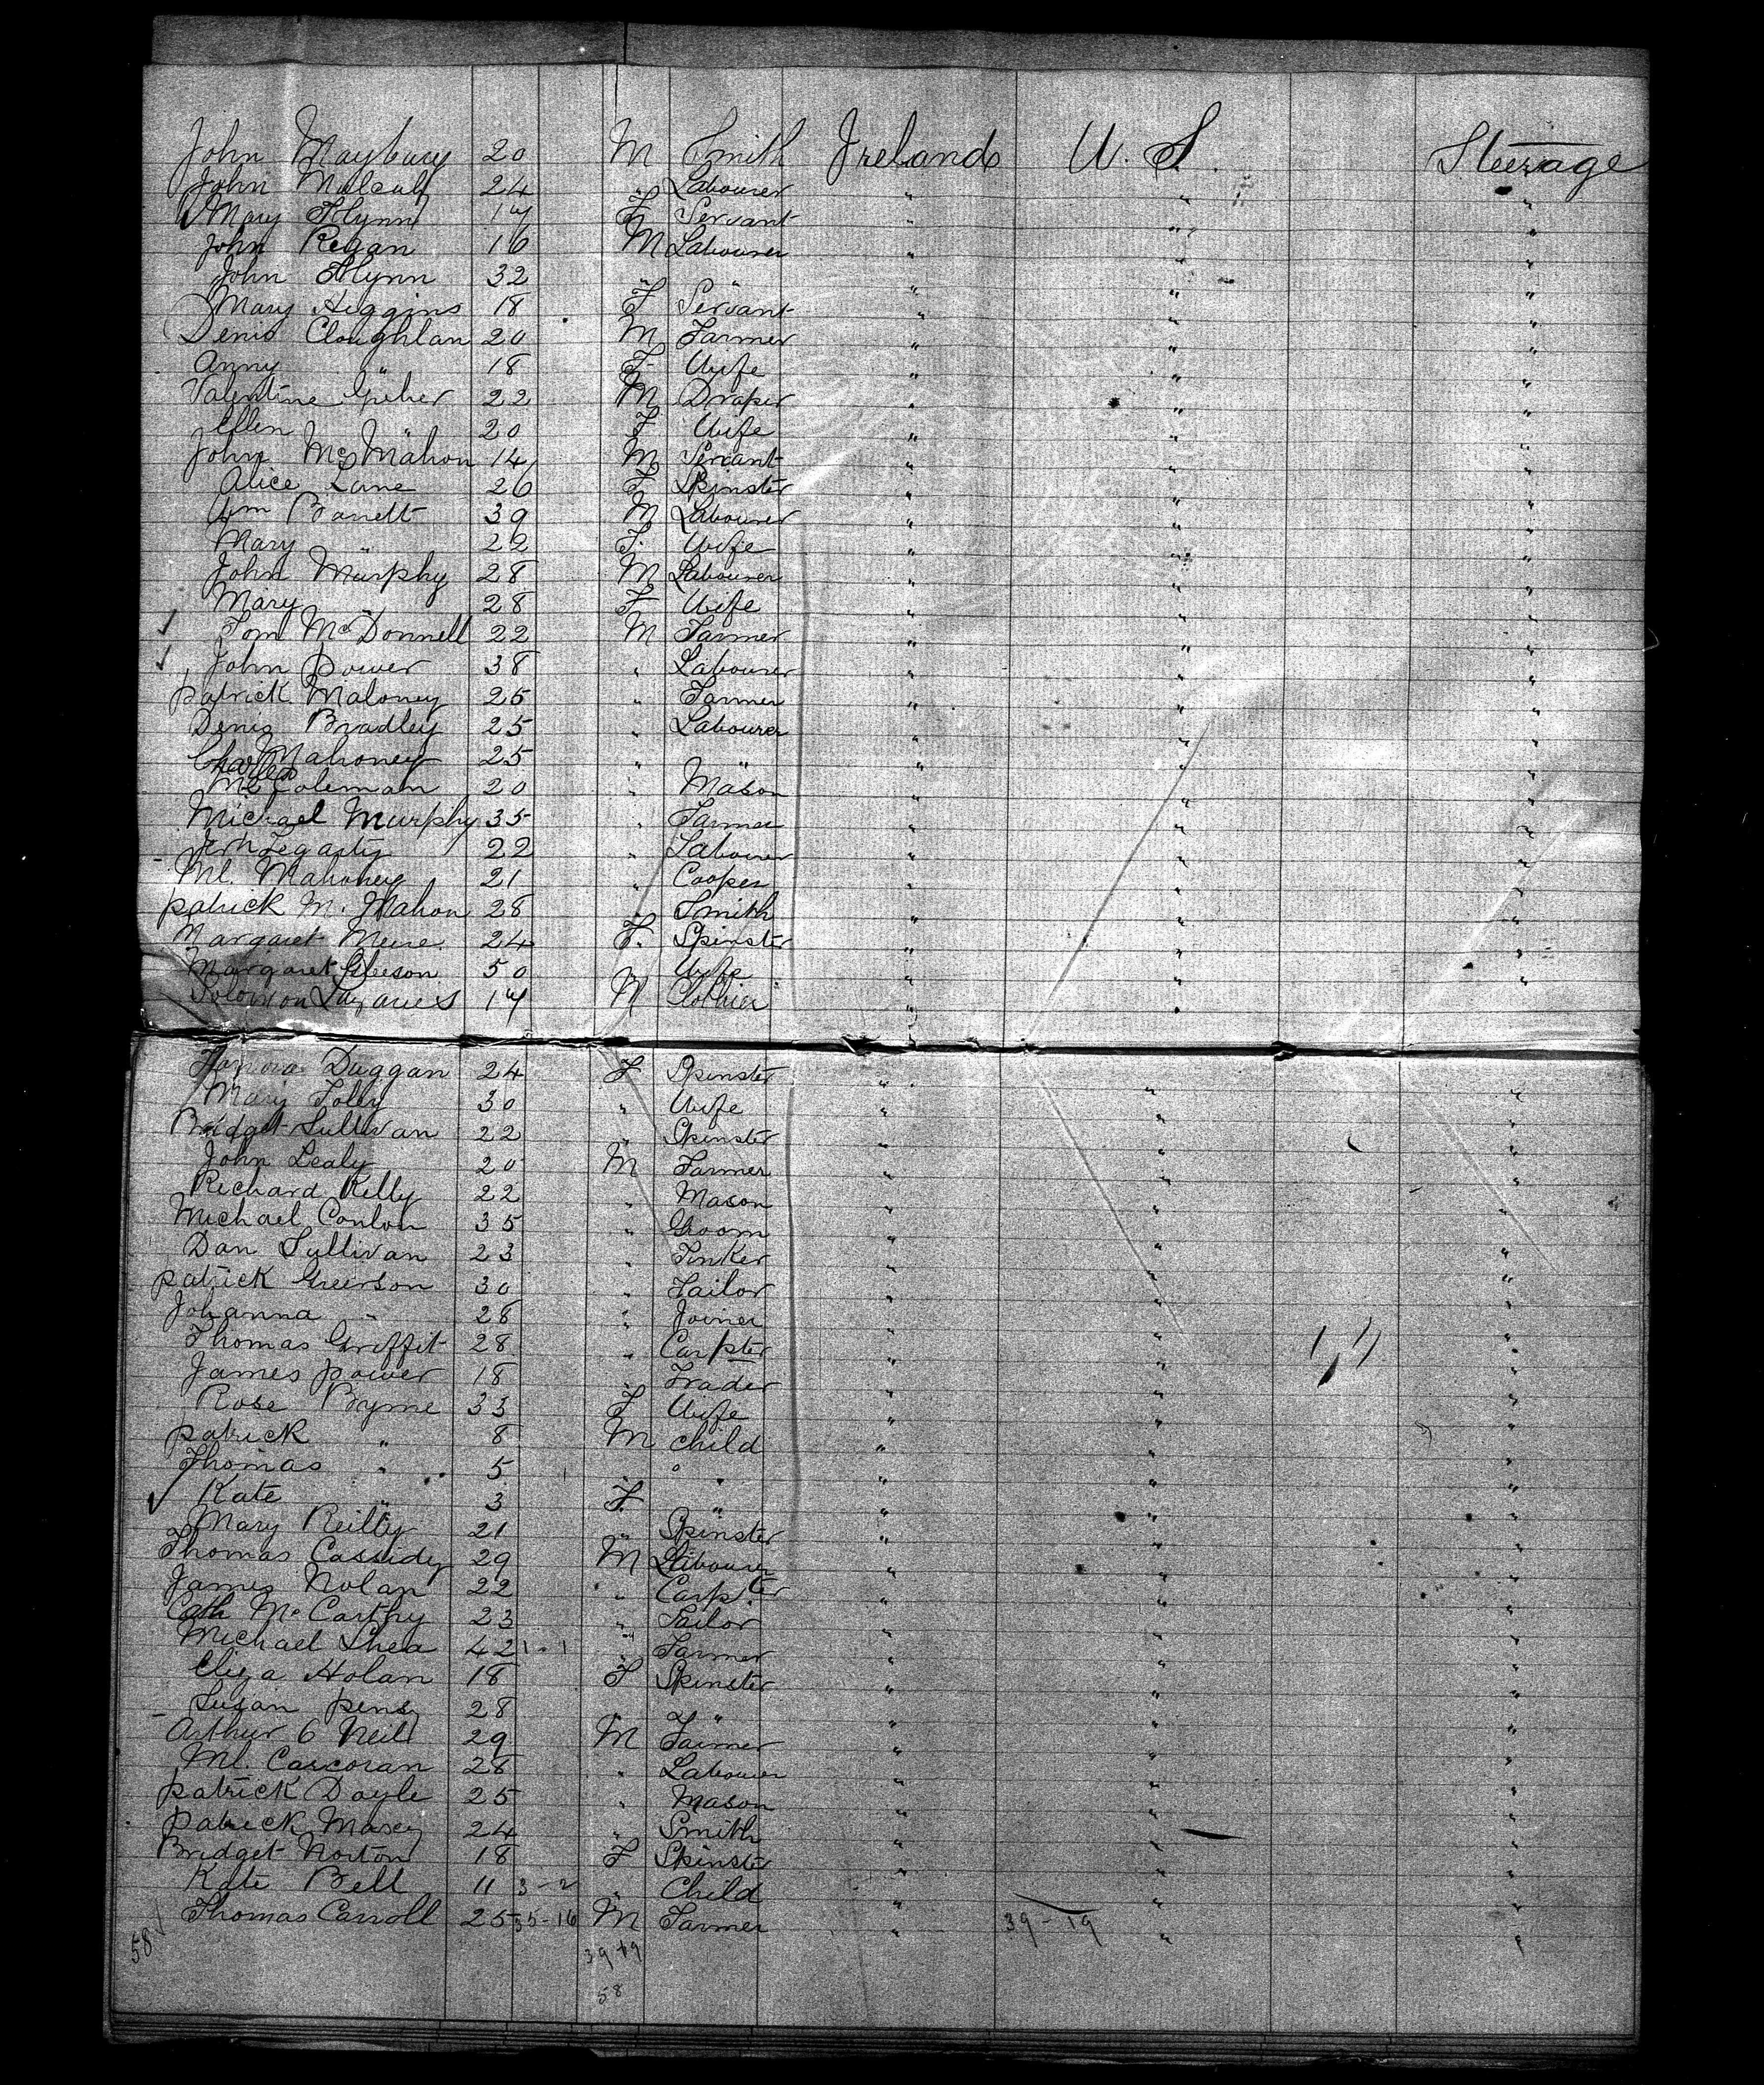 John Maybury 20 M Smith Ireland U. S. Steerage
John Mulcah 24 " Labourer " " "
Mary Flynn 17 F Servant " " "
John Regan 16 M Labourer " " "
John Flynn 32 " " " " "
Mary Higgins 18 F Servant " " "
Denis Cloughlan 20 M Farmer " " "
Anny " 18 F Wife " " "
Valentine 22 M Draper " " "
Ellen " 20 F Wife " " "
John McMahon 14 M Servant " " "
Alice Lane 26 F Spinster " " "
Wm Barrett 39 M Labourer " " "
Mary " 22 F. Wife " " "
John Murphy 28 M Labourer " " "
Mary " 28 F Wife " " "
Tom McDonnell 22 M Farmer " " "
John Power 38 " Labourer " " "
Patrick Maloney 25 " Farmer " " "
Denis Bradley 25 " Labourer " " "
Charles Mahoney 25 " " " " "
Ml Coleman 20 " Mason " " "
Michael Murphy 35 " Farmer " " "
Jerh Fegarty 22 " Labourer " " "
Ml. Mahoney 21 " Cooper " " "
Patrick M. Mahon 28 " Smith " " "
Margaret 24 F. Spinster " " "
Margaret Gleeson 50 " Wife " " "
Solomon Lazarus 17 M Clothier " " "
Honora Duggan 24 F Spinster " " "
Mary Foley 30 " Wife " " "
Bridget Sullivan 22 " Spinster " " "
John Lealy 20 M Farmer " " "
Richard Kelly 22 " Mason " " "
Michael Conlon 35 " Groom " " "
Dan Sullivan 23 " Tinker " " "
Patrick Greerson 30 " Tailor " " "
Johanna " 28 " Joiner " " "
Thomas Griffit 28 " Carpter " " "
James Power 18 " Trader " " "
Rose Byrne 33 F Wife " " "
Patrick " 8 M Child " " "
Thomas " 5 " " " " "
Kate " 3 F. " " " "
Mary Reilly 21 " Spinster " " "
Thomas Cassidy 29 M Labourer " " "
James Nolan 22 " Carpter " " "
Cath McCarthy 23 " Tailor " " "
Michael Shea 42 1-1 " Farmer " " "
Eliza Holan 18 F Spinster " " "
Susan 28 " " " " "
Arthur O Neill 29 M Farmer " " "
Ml. Corcoran 28 " Labourer " " "
Patrick Doyle 25 " Mason " " "
Patrick Masey 24 " Smith " " "
Bridget Norton 18 F Spinster " " "
Kate Bell 11 3-2 " Child " " "
Thomas Carroll 25 35-16 M Farmer " 39-19 " "
58
39+19
58